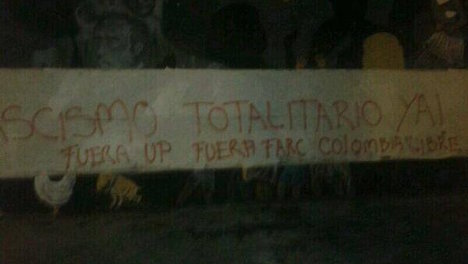 ASCISMO TOTALITARIO YA!
FUERA UP FUERA FARC COLOMBIA LIBRE